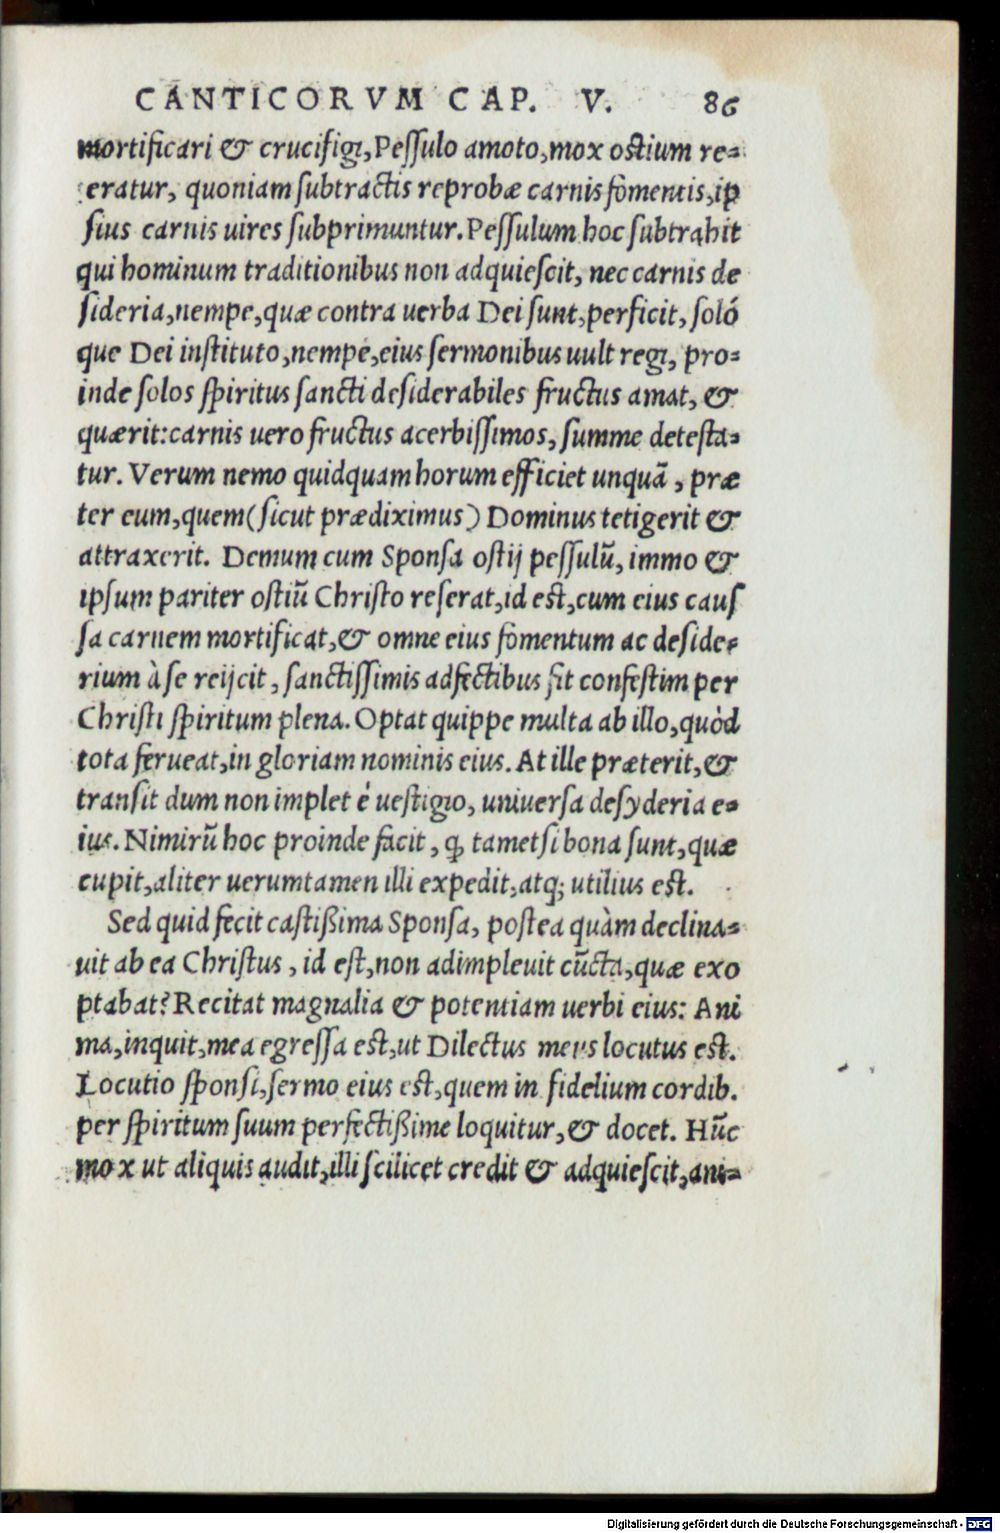 CANTICORVM CAP. V. 86
mortificari & crucifigi, Pessulo amoto, mox ostium re=
eratur, quoniam subtractis reprobæ carnis fomentis, ip
sius carnis uires subprimuntur. Pessulum hoc subtrahit
qui hominum traditionibus non adquiescit, nec carnis de
sideria, nempe, quæ contra uerba Dei sunt, perficit, soló
que Dei instituto, nempe, eius sermonibus uult regi, pro=
inde solos spiritus sancti desiderabiles fructus amat, &
quærit: carnis uero fructus acerbissimos, summe detesta=
tur. Verum nemo quidquam horum efficiet unquā, præ
ter eum, quem (sicut prædiximus) Dominus tetigerit &
attraxerit. Demum cum Sponsa ostij pessulū, immo &
ipsum pariter ostiū Christo reserat, id est, cum eius caus
sa carnem mortificat, & omne eius fomentum ac deside=
rium à se reijcit, sanctissimis adfectibus fit confestim per
Christi spiritum plena. Optat quippe multa ab illo, quòd
tota ferueat, in gloriam nominis eius. At ille præterit, &
transit dum non implet è uestigio, uniuersa desyderia e=
ius. Nimirū hoc proinde facit, ꝙ tametsi bona sunt, quæ
cupit, aliter uerumtamen illi expedit, atq; utilius est.
Sed quid fecit castißima Sponsa, postea quàm declina=
uit ab ea Christus, id est, non adimpleuit cūcta, quæ exo
ptabat? Recitat magnalia & potentiam uerbi eius: Ani
ma, inquit, mea egressa est, ut Dilectus meus locutus est.
Locutio sponsi, sermo eius est, quem in fidelium cordib.
per spiritum suum perfectißime loquitur, & docet. Hūc
mox ut aliquis audit, illi scilicet credit & adquiescit, ani=
Digitalisierung gefördert durch die Deutsche Forschungsgemeinschaft - DFG